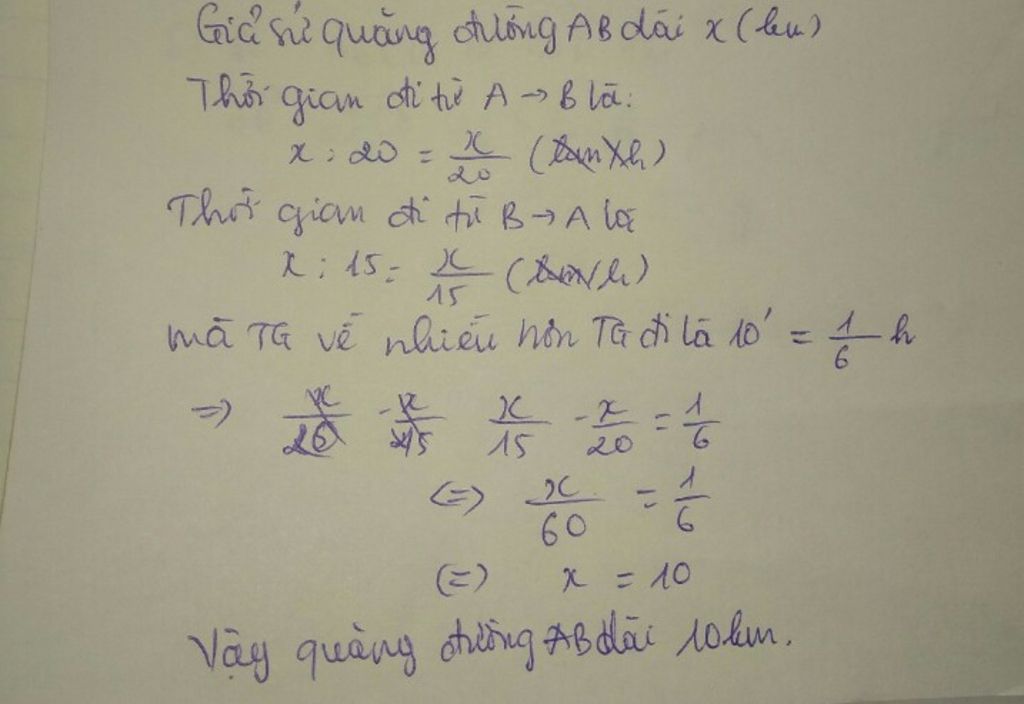 Giả sử quãng đường AB dài x (km)
Thời gian đi từ A → B là:
x : 20 = x/20 (h)
Thời gian đi từ B → A là
x : 15 = x/15 (h)
mà TG về nhiều hơn TG đi là 10' = 1/6 h
=> x/15 - x/20 = 1/6
<=> x/60 = 1/6
(=) x = 10
Vậy quãng đường AB dài 10km.